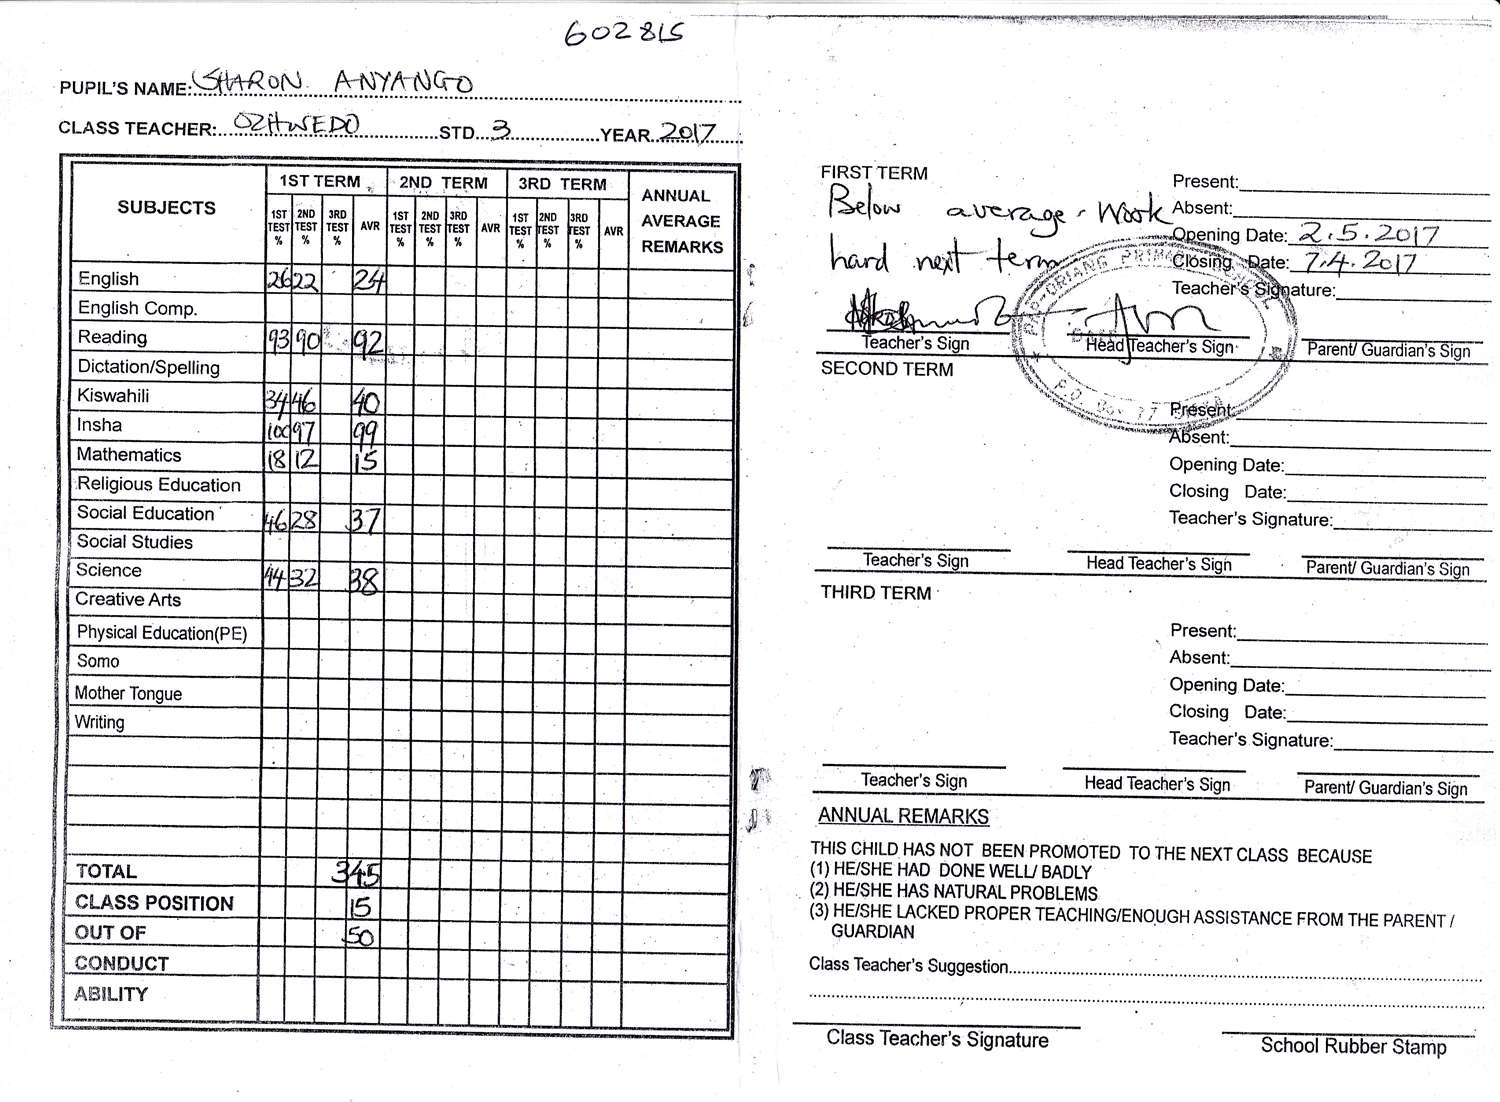 602815
PUPIL'S NAME: SHARON ANYANGO
CLASS TEACHER: OZHWEDO STD 3 YEAR 2017
SUBJECTS 1ST TERM 2ND TERM 3RD TERM ANNUAL AVERAGE REMARKS
1ST TEST % 2ND TEST % 3RD TEST % AVR 1ST TEST % 2ND TEST % 3RD TEST % AVR 1ST TEST % 2ND TEST % 3RD TEST % AVR
English 26 22 24
English Comp.
Reading 93 90 92
Dictation/Spelling
Kiswahili 34 46 40
Insha 100 97 99
Mathematics 18 12 15
Religious Education
Social Education 46 28 37
Social Studies
Science 44 32 38
Creative Arts
Physical Education(PE)
Somo
Mother Tongue
Writing
TOTAL 345
CLASS POSITION 15
OUT OF 50
CONDUCT
ABILITY
FIRST TERM
Below average. Work
hard next term
Present:
Absent:
Opening Date: 2.5.2017
Closing Date: 7.4.2017
Teacher's Signature:
Teacher's Sign Head Teacher's Sign Parent/ Guardian's Sign
SECOND TERM
Present:
Absent:
Opening Date:
Closing Date:
Teacher's Signature:
Teacher's Sign Head Teacher's Sign Parent/ Guardian's Sign
THIRD TERM
Present:
Absent:
Opening Date:
Closing Date:
Teacher's Signature:
Teacher's Sign Head Teacher's Sign Parent/ Guardian's Sign
ANNUAL REMARKS
THIS CHILD HAS NOT BEEN PROMOTED TO THE NEXT CLASS BECAUSE
(1) HE/SHE HAD DONE WELL/ BADLY
(2) HE/SHE HAS NATURAL PROBLEMS
(3) HE/SHE LACKED PROPER TEACHING/ENOUGH ASSISTANCE FROM THE PARENT /
GUARDIAN
Class Teacher's Suggestion
Class Teacher's Signature School Rubber Stamp